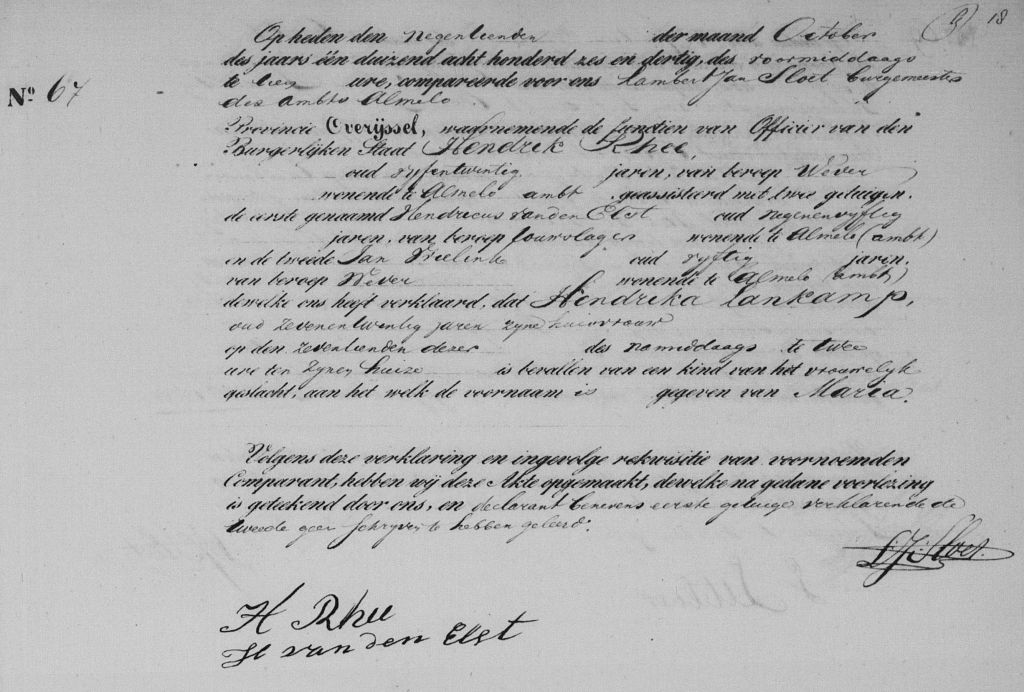 18
Op heden den negentienden der maand October
des jaars één duizend acht honderd zes en dertig, des voormiddaags
te tien ure, compareerde voor ons Lambert Jan Sloet burgemeester
des ambts Almelo
Nº 67
Provincie Overijssel, waarnemende de functien van Officier van den
Burgerlijken Staat Hendrik Rhee,
oud vyfentwintig jaren, van beroep Wever
wonende te Almelo ambt geassisteerd met twee getuigen.
de eerste genaamd Hendricus van den Elst oud negenenvyftig
jaren, van beroep touwslager wonende te Almelo (ambt)
en de tweede Jan Wielink oud vyftig jaren.
van beroep Wever wonende te Almelo (ambt)
dewelke ons heeft verklaard, dat Hendrika Lankamp,
oud zevenentwintig jaren zyne huisvrouw
op den zeventienden dezer des namiddaags te twee
ure ten zynen huize is bevallen van een kind van het vrouwelyk
geslacht, aan het welk de voornaam is gegeven van Maria.
Volgens deze verklaring en ingevolge rekwisitie van voornoemden
Comparant, hebben wij deze Akte opgemaakt, dewelke na gedane voorlezing
is geteekend door ons, en declarant benevens eerste getuige verklarende de
tweede geen schryven te hebben geleerd.
L J Sloet
H Rhee
H van den Elst